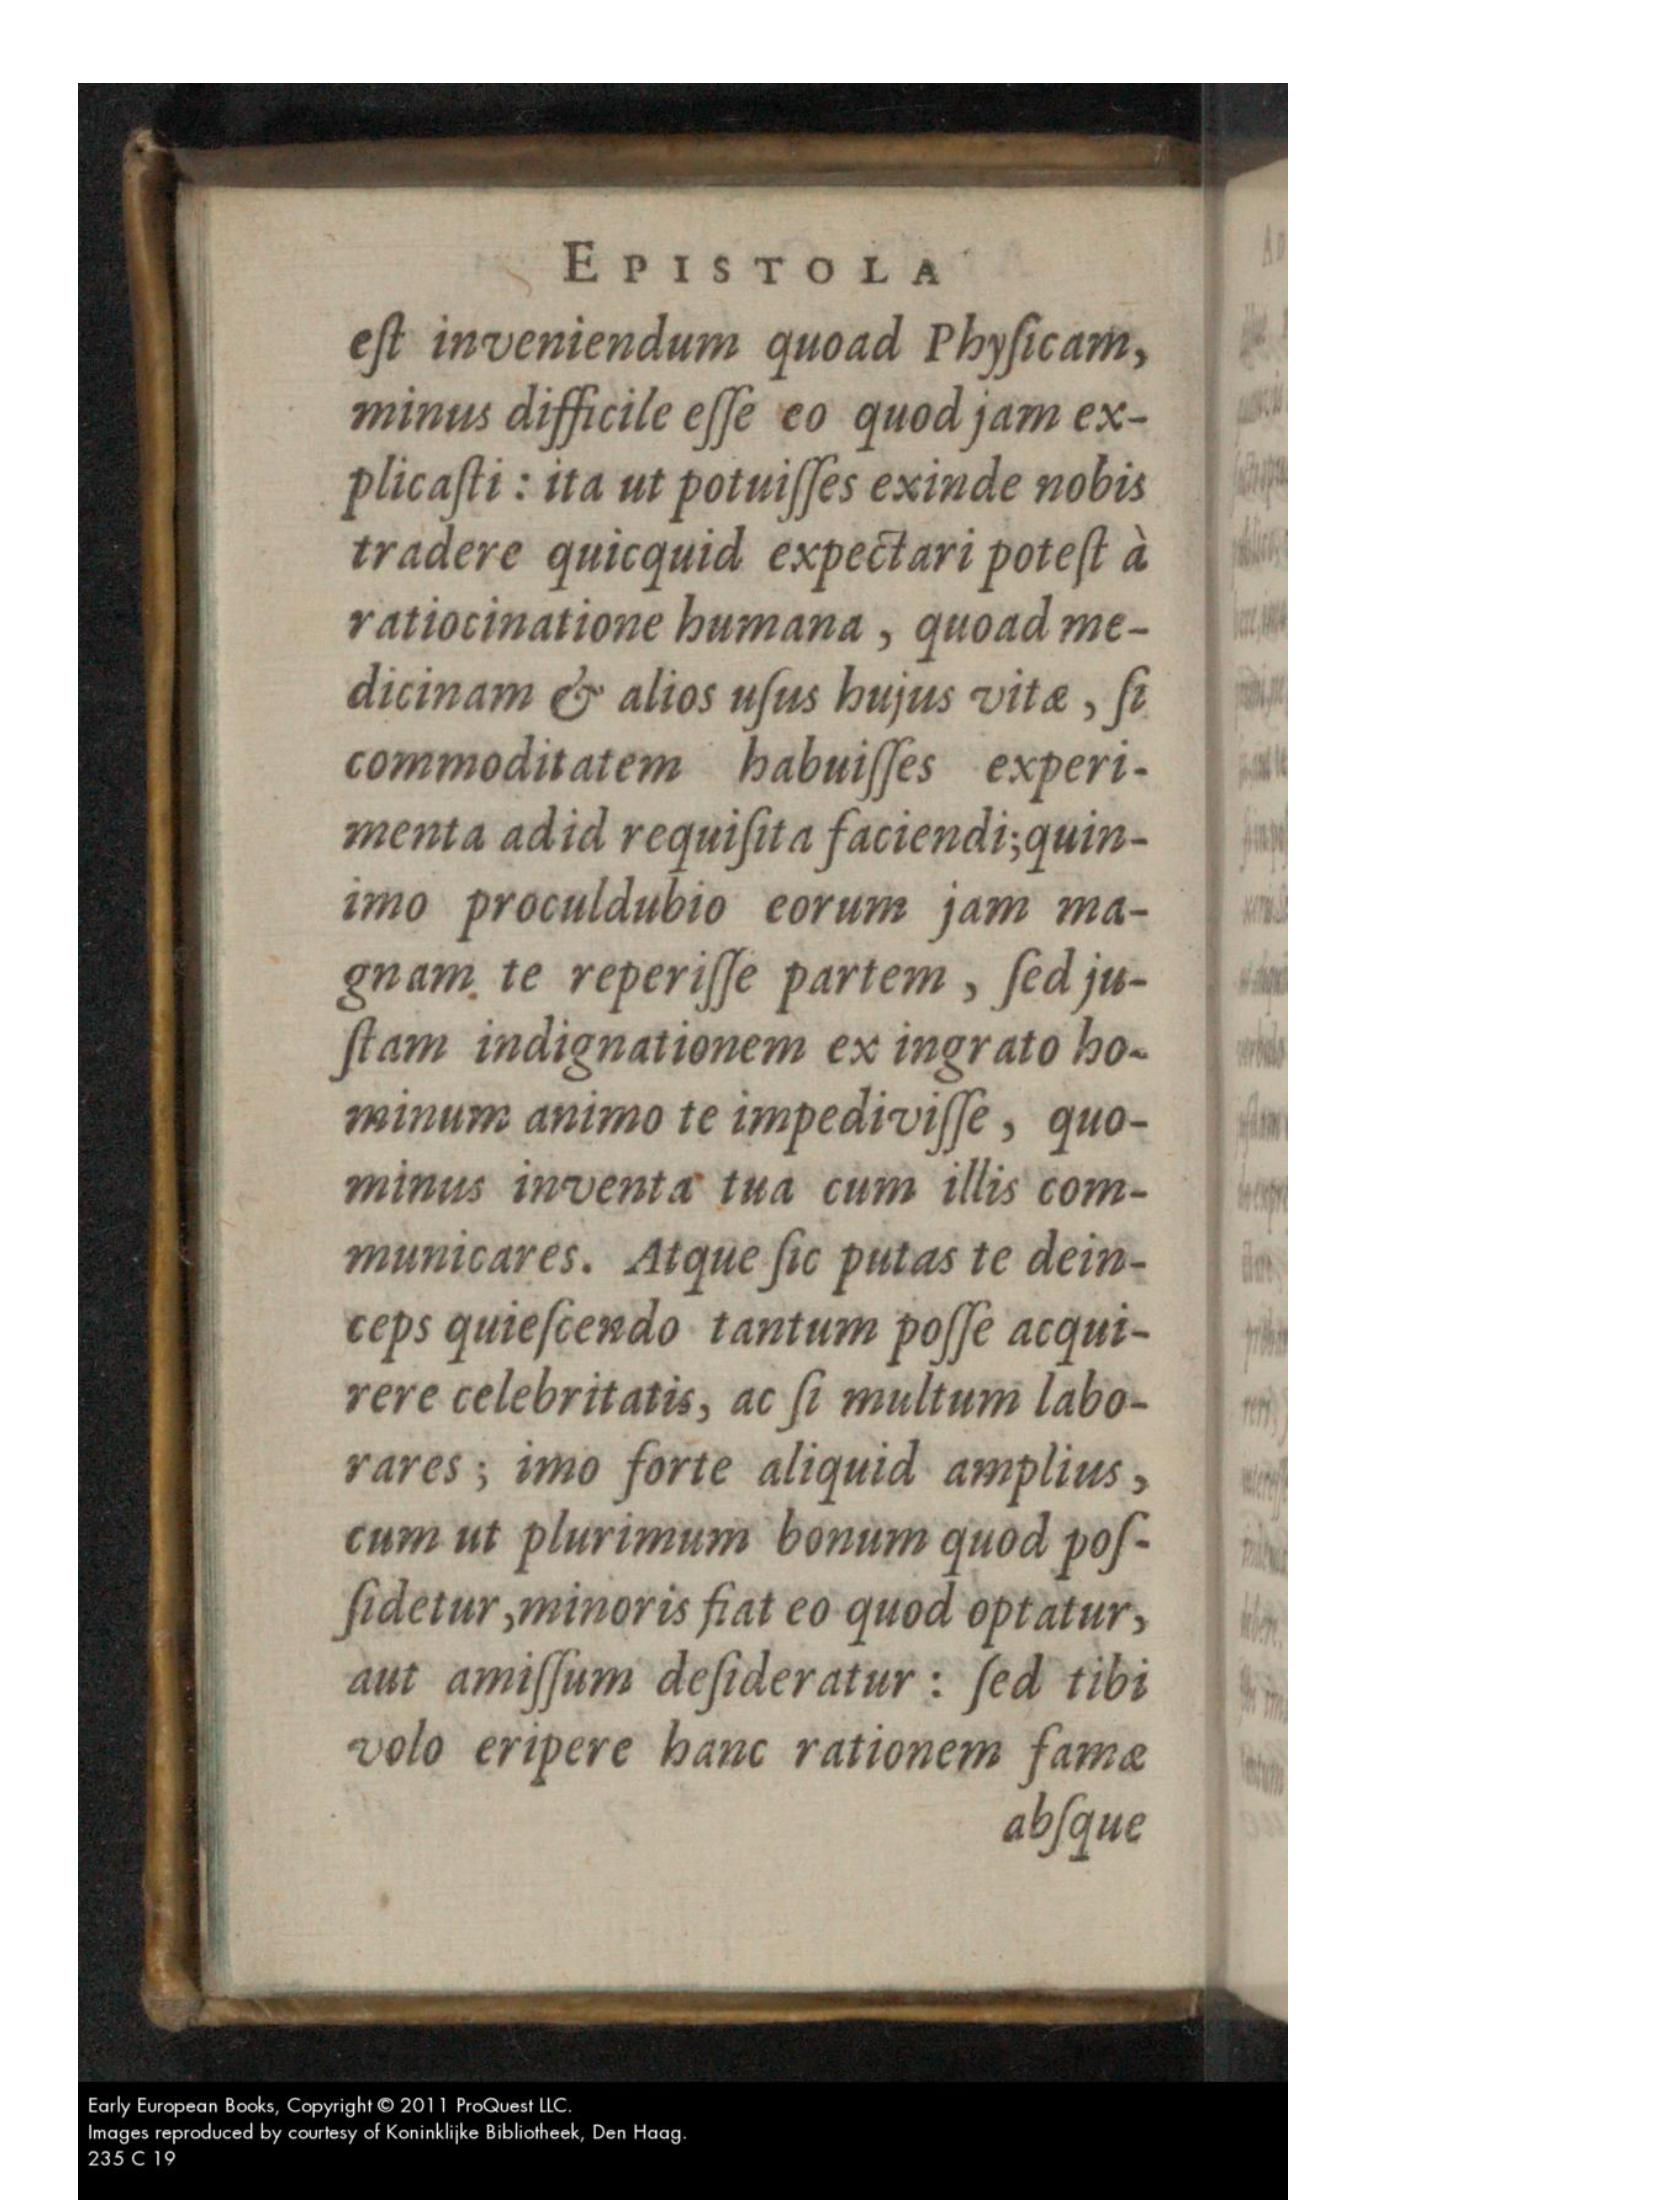 EPISTOLA
eſt inveniendum quoad Phyſicam,
minus difficile eſſe eo quod jam ex-
plicaſti : ita ut potuiſſes exinde nobis
tradere quicquid expectari poteſt à
ratiocinatione humana , quoad me-
dicinam & alios uſus hujus vitæ , ſi
commoditatem habuiſſes experi-
menta ad id requiſita faciendi; quin-
imo proculdubio eorum jam ma-
gnam te reperiſſe partem , ſed ju-
ſtam indignationem ex ingrato ho-
minum animo te impediviſſe , quo-
minus inventa tua cum illis com-
municares. Atque ſic putas te dein-
ceps quieſcendo tantum poſſe acqui-
rere celebritatis, ac ſi multum labo-
rares ; imo forte aliquid amplius ,
cum ut plurimum bonum quod poſ-
ſidetur ,minoris fiat eo quod optatur,
aut amiſſum deſideratur : ſed tibi
volo eripere hanc rationem famæ
abſque
Early European Books, Copyright © 2011 ProQuest LLC.
Images reproduced by courtesy of Koninklijke Bibliotheek, Den Haag.
235 C 19